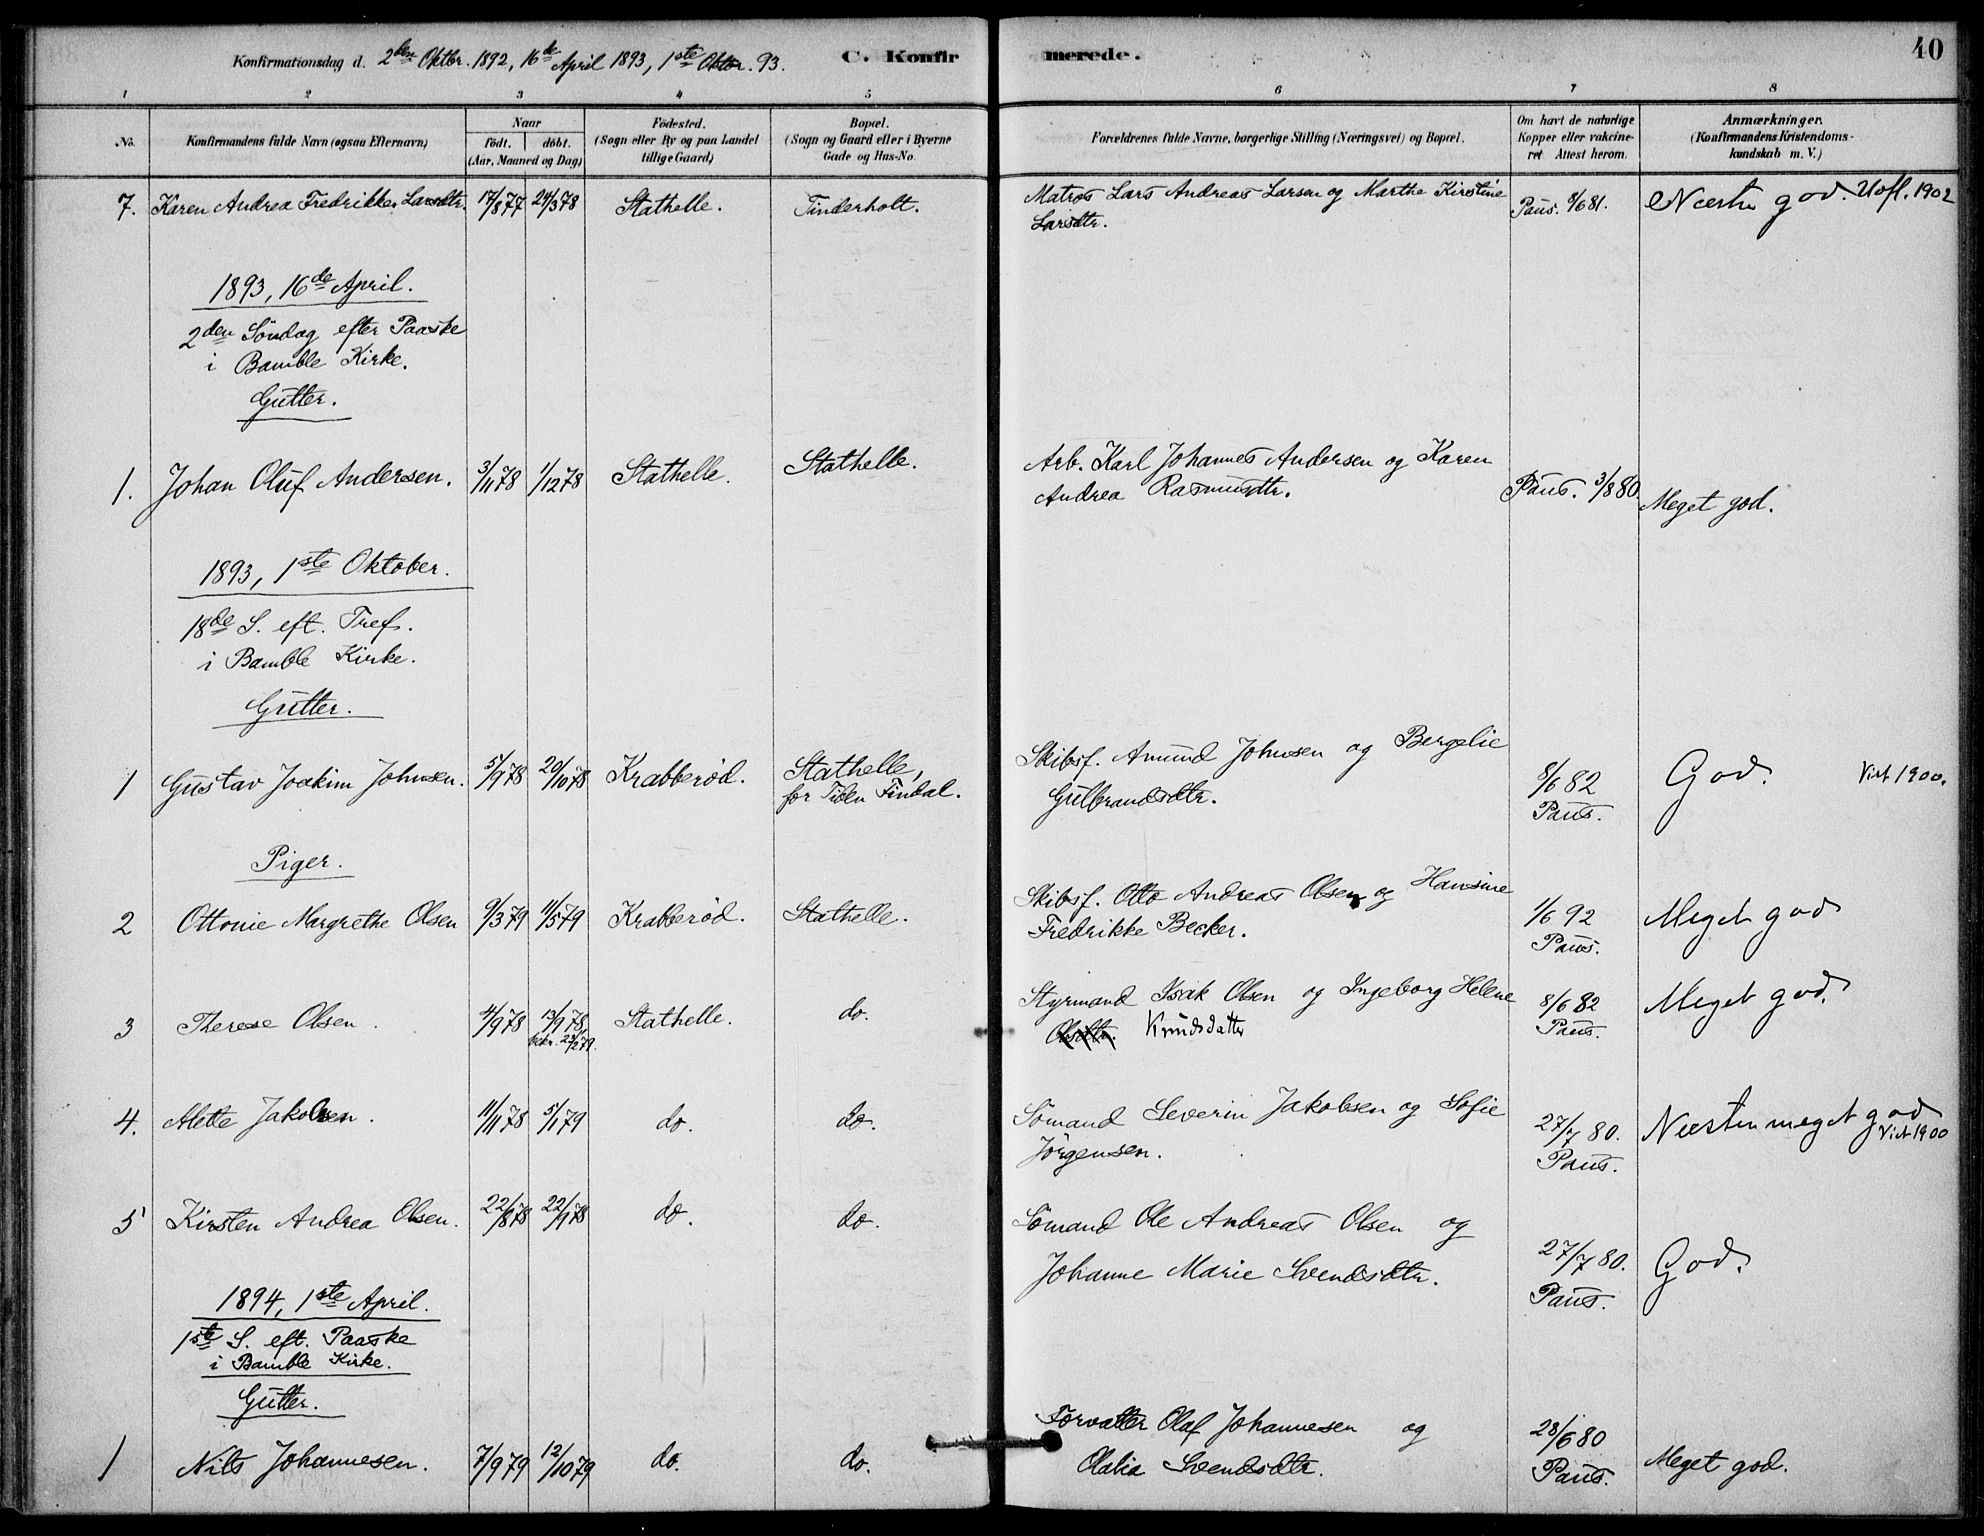 Konfirmationsdag d. 2den Oktbr. 1892, 16de April 1893, 1ste Oktbr. 93. C. Konfirmerede. 40
1 2 3 4 5 6 7 8
No. Konfirmandens fulde Navn (ogsaa Efternavn) Naar født. døbt. (Aar, Maaned og Dag) Fødested. (Sogn eller By og paa Landet tillige Gaard) Bopæl. (Sogn og Gaard eller i Byerne Gade og Hus-No. Forældrenes fulde Navne, borgerlige Stilling (Næringsvei) og Bopæl. Om havt de naturlige Kopper eller vakcineret Attest herom. Anmærkninger. (Konfirmandens Kristendomskundskab m. V.)
7. Karen Andrea Fredrikke Larsdtr. 17/8 77 24/3 78 Stathelle. Tinderholt. Matros Lars Andreas Larsen og Marthe Kirstine Paus. 8/6 81. Næsten god. Uofl. 1902
Larsdtr.
1893, 16de April.
2den Söndag efter Paaske
i Bamble Kirke.
Gutter.
1. Johan Oluf Andersen. 3/11 78 1/12 78 Stathelle. Stathelle. Arb. Karl Johannes Andersen og Karen
Andrea Rasmusdtr. Paus. 3/8 80. Meget god.
1893, 1ste Oktober.
18de S. eft. Tref.
i Bamble Kirke.
Gutter.
1 Gustav Joakim Johnsen. 5/9 78 20/10 78 Krabberød. Stathelle, for Tiden Findal. Skibsf. Amund Johnsen og Bergelie
Gulbrandsdtr. 8/6 82 Paus. God. Vist 1900.
Piger.
2 Ottonie Margrethe Olsen 9/3 79 11/5 79 Krabberød. Stathelle. Skibsf. Otto Andreas Olsen og Hansine
Fredrikke Becker. 1/6 92 Paus. Meget god
3 Therese Olsen. 4/9 78 13/9 78, bekr. 23/2 79. Stathelle. do. Styrmand Isak Olsen og Ingeborg Helene
Olsdtr. Knudsdatter 8/6 82 Paus. Meget god.
4. Mette Jakobsen. 11/11 78 5/1 79 do. do. Sömand Severin Jakobsen og Sofie
Jörgensen. 27/7 80. Paus. Næsten meget god Vist 1900
5 Kirsten Andrea Olsen. 22/8 78 22/9 78 do. do. Sömand Ole Andreas Olsen og
Johanne Marie Svendsdtr. 27/7 80. Paus. God.
1894, 1ste April.
1ste S. eft. Paaske
i Bamble Kirke.
Gutter.
1 Nils Johannesen. 7/9 79 12/10 79 do. do. Forvalter Olaf Johannesen og
Olalia Svendsdtr. 28/6 80 Paus. Meget god.